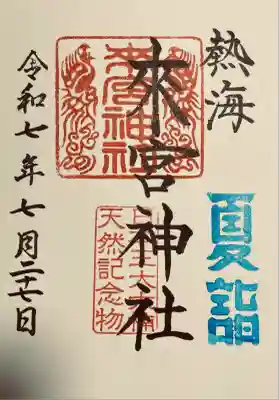 熱海
夏詣
來宮神社
來宮神社
天然記念物
令和七年七月二十七日